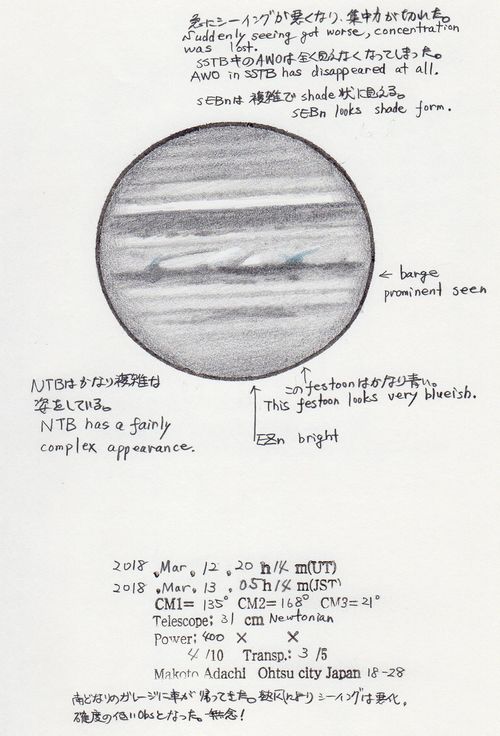 急にシーイングが悪くなり、集中力が切れた。
Suddenly seeing got worse, concentration
was lost.
SSTB中のAWOは全く見えなくなってしまった。
AWO in SSTB has disappeared at all.
SEBnは複雑でshade状に見える。
SEBn looks shade form.
← barge
prominent seen
NTBはかなり複雑な
姿をしている。
NTB has a fairly
complex appearance.
このfestoonはかなり青い。
This festoon looks very blueish.
EZn bright
2018 .Mar. 12 . 20 h 14 m(UT)
2018 .Mar. 13 . 05 h 14 m(JST)
CM1= 135° CM2= 168° CM3= 21°
Telescope: 31 cm Newtonian
Power: 400 × ×
4 /10 Transp.: 3 /5
Makoto Adachi Ohtsu city Japan 18-28
南どなりのガレージに車が帰ってきた。熱気により シーイングは悪化。
確度の低いobsとなった。無念!